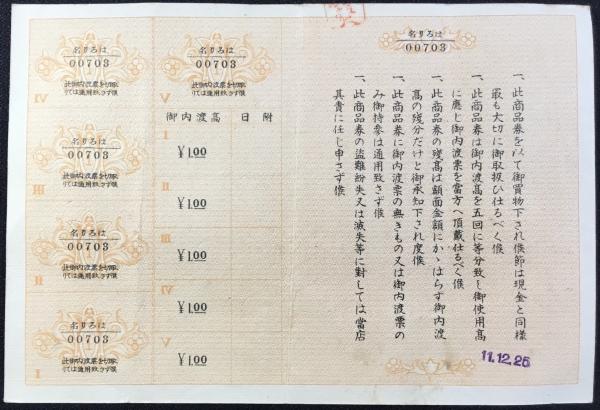 名りろは
00703
一、此商品券を以て御買物下され候節は現金と同様
最も大切に御取扱ひ仕るべく候
一、此商品券は御内渡高を五回に等分致し御使用高
に應じ御内渡票を當方へ頂戴仕るべく候
一、此商品券の残高は額面金額にかゝはらず御内渡
高の残分だけと御承知下され度候
一、此商品券に御内渡票の無きもの又は御内渡票の
み御持参は通用致さず候
一、此商品券の盗難紛失又は滅失等に對しては當店
其責に任じ申さず候
11.12.25
名りろは
00703
此御内渡票を切取
りては通用致さず候
V
名りろは
00703
此御内渡票を切取
りては通用致さず候
VI
御内渡高
日附
I
¥1.00
II
¥1.00
III
¥1.00
VI
¥1.00
V
¥1.00
名りろは
00703
此御内渡票を切取
りては通用致さず候
III
名りろは
00703
此御内渡票を切取
りては通用致さず候
II
名りろは
00703
此御内渡票を切取
りては通用致さず候
I